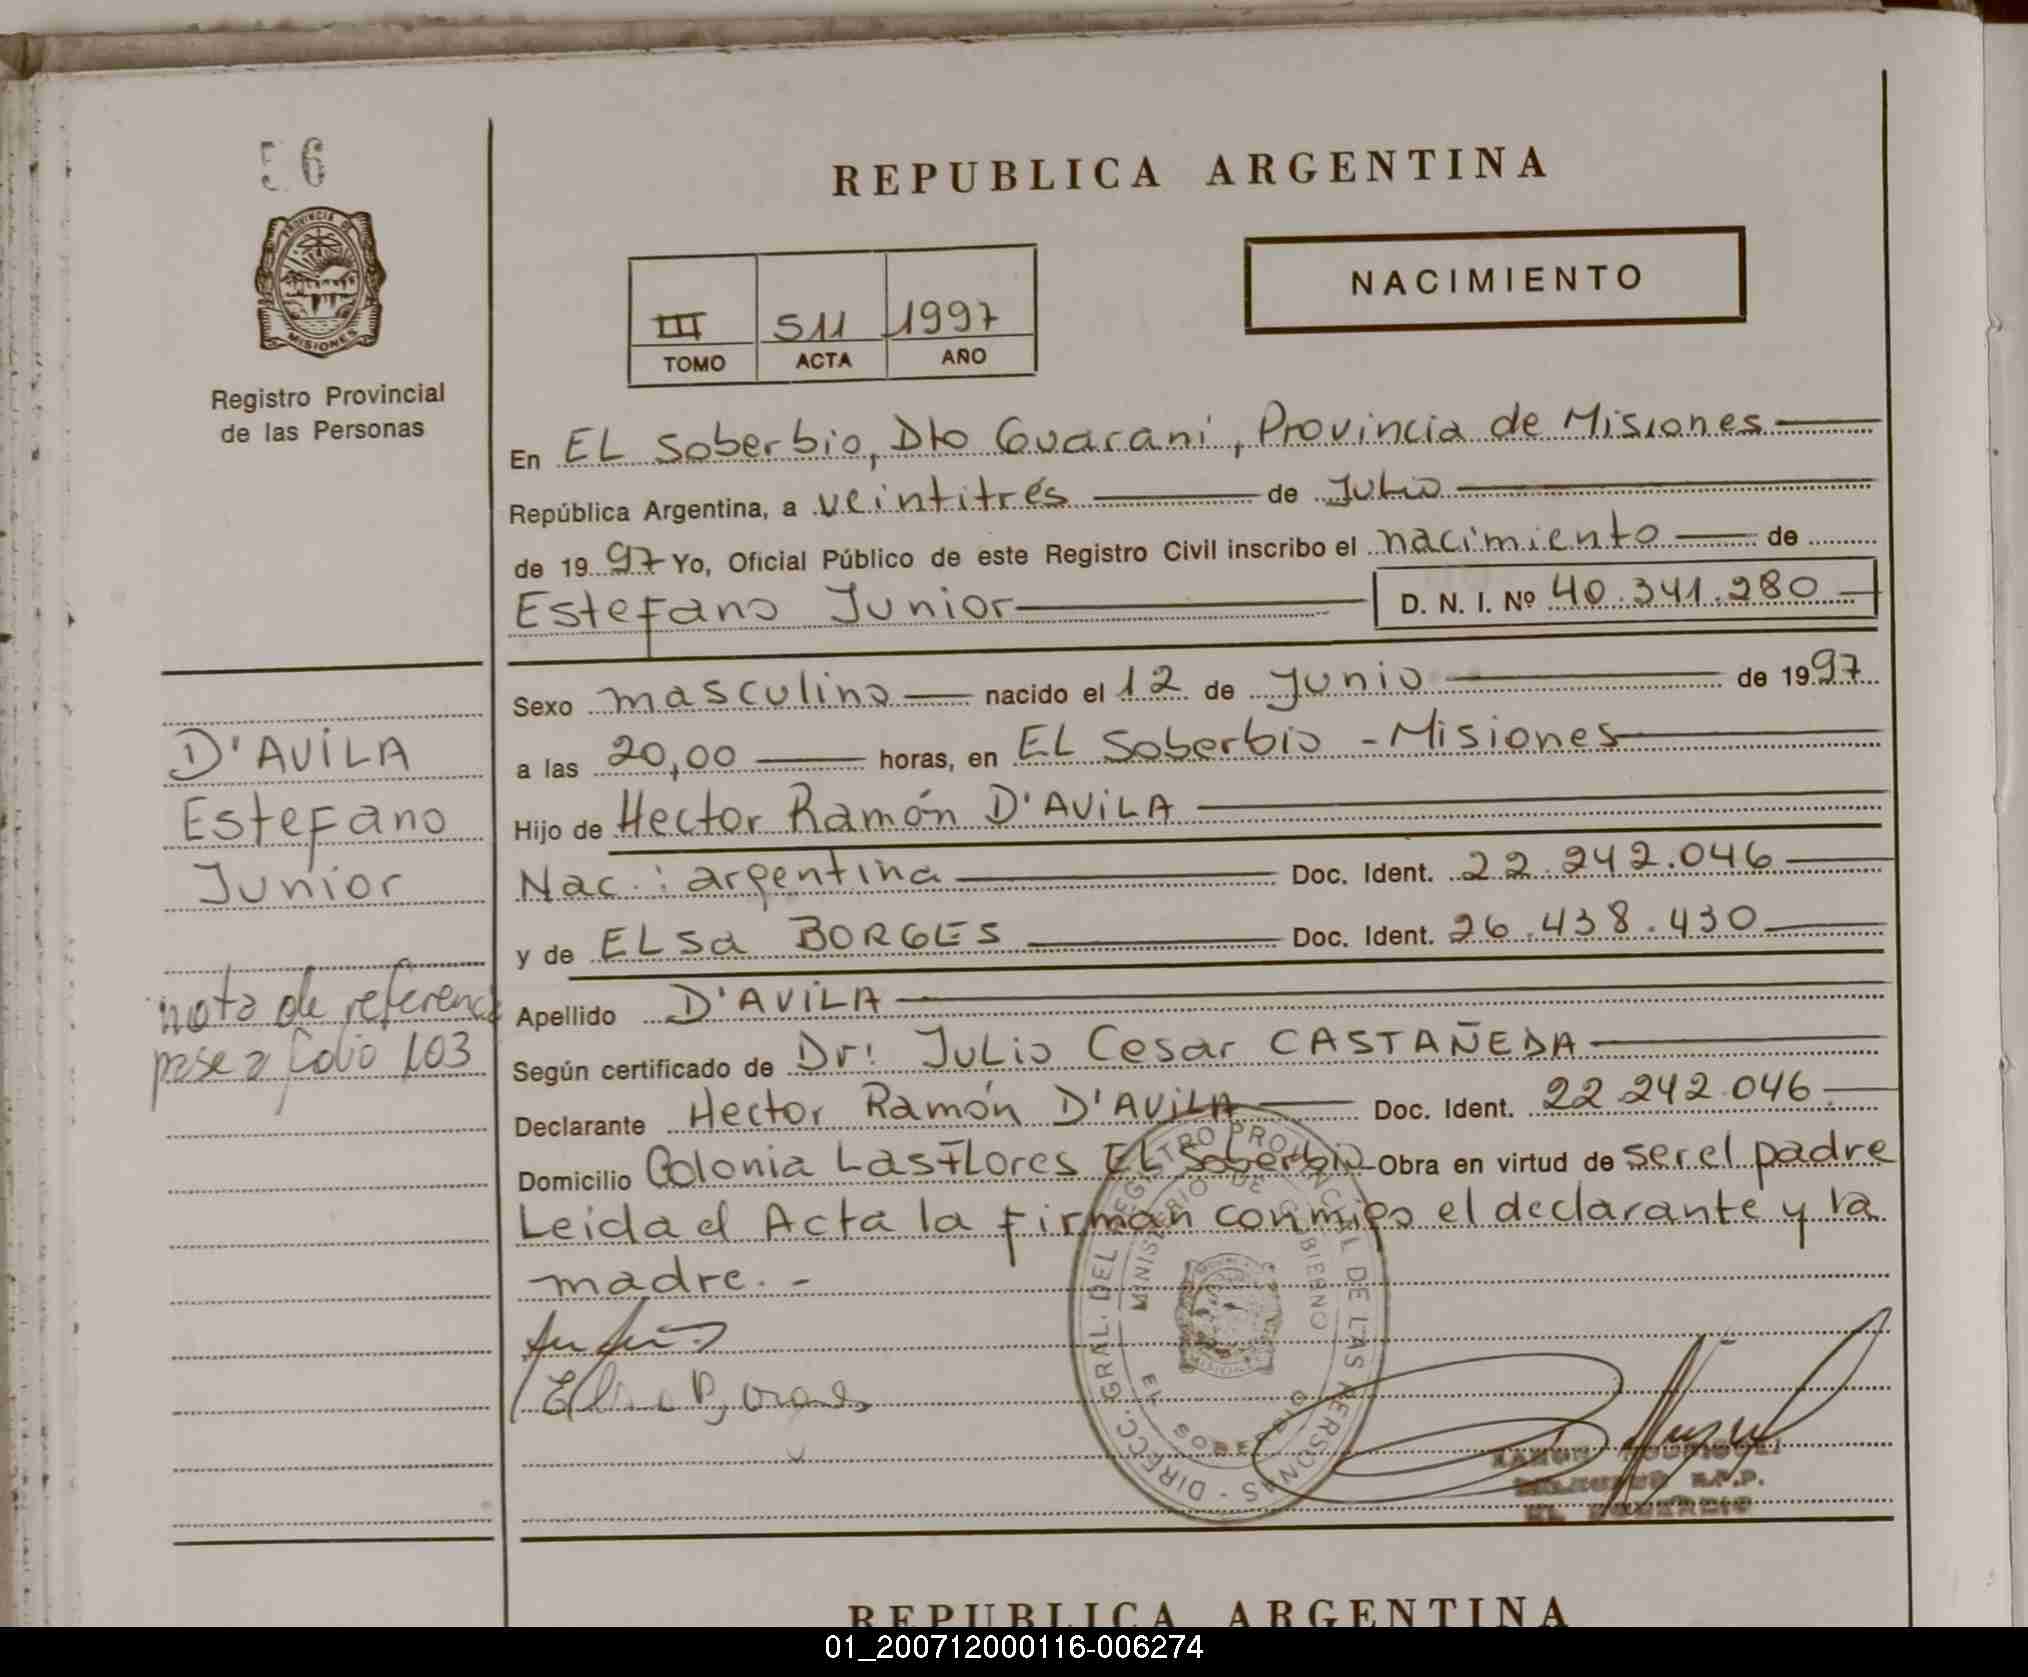 56
PROVINCIA DE
MISIONES
Registro Provincial
de las Personas
REPUBLICA ARGENTINA
NACIMIENTO
III 511 1997
TOMO ACTA AÑO
En EL Soberbio, Dto Guaraní, Provincia de Misiones
República Argentina, a veintitrés de Julio
de 1997 Yo, Oficial Público de este Registro Civil inscribo el nacimiento de
Estefano Junior D. N. I. Nº 40.341.280
Sexo masculino nacido el 12 de Junio de 1997
a las 20,00 horas, en EL Soberbio - Misiones
Hijo de Hector Ramón D'AVILA
Nac.: argentina Doc. Ident. 22.242.046
y de ELsa BORGES Doc. Ident. 26.438.430
Apellido D'AVILA
Según certificado de Dr: Julio Cesar CASTAÑEDA
Declarante Hector Ramón D'AVILA Doc. Ident. 22.242.046
Domicilio Colonia Las Flores EL Soberbio Obra en virtud de ser el padre
Leida el Acta la firman conmigo el declarante y la
madre.-
D'AVILA
Estefano
Junior
nota de referenci
pase a folio 103
DIRECC. GRAL. DEL REGISTRO PROVINCIAL DE LAS PERSONAS -
MINISTERIO DE GOBIERNO
EL SOBERBIO
MISIONES
EL SOBERBIO
REPUBLICA ARGENTINA
01_200712000116-006274